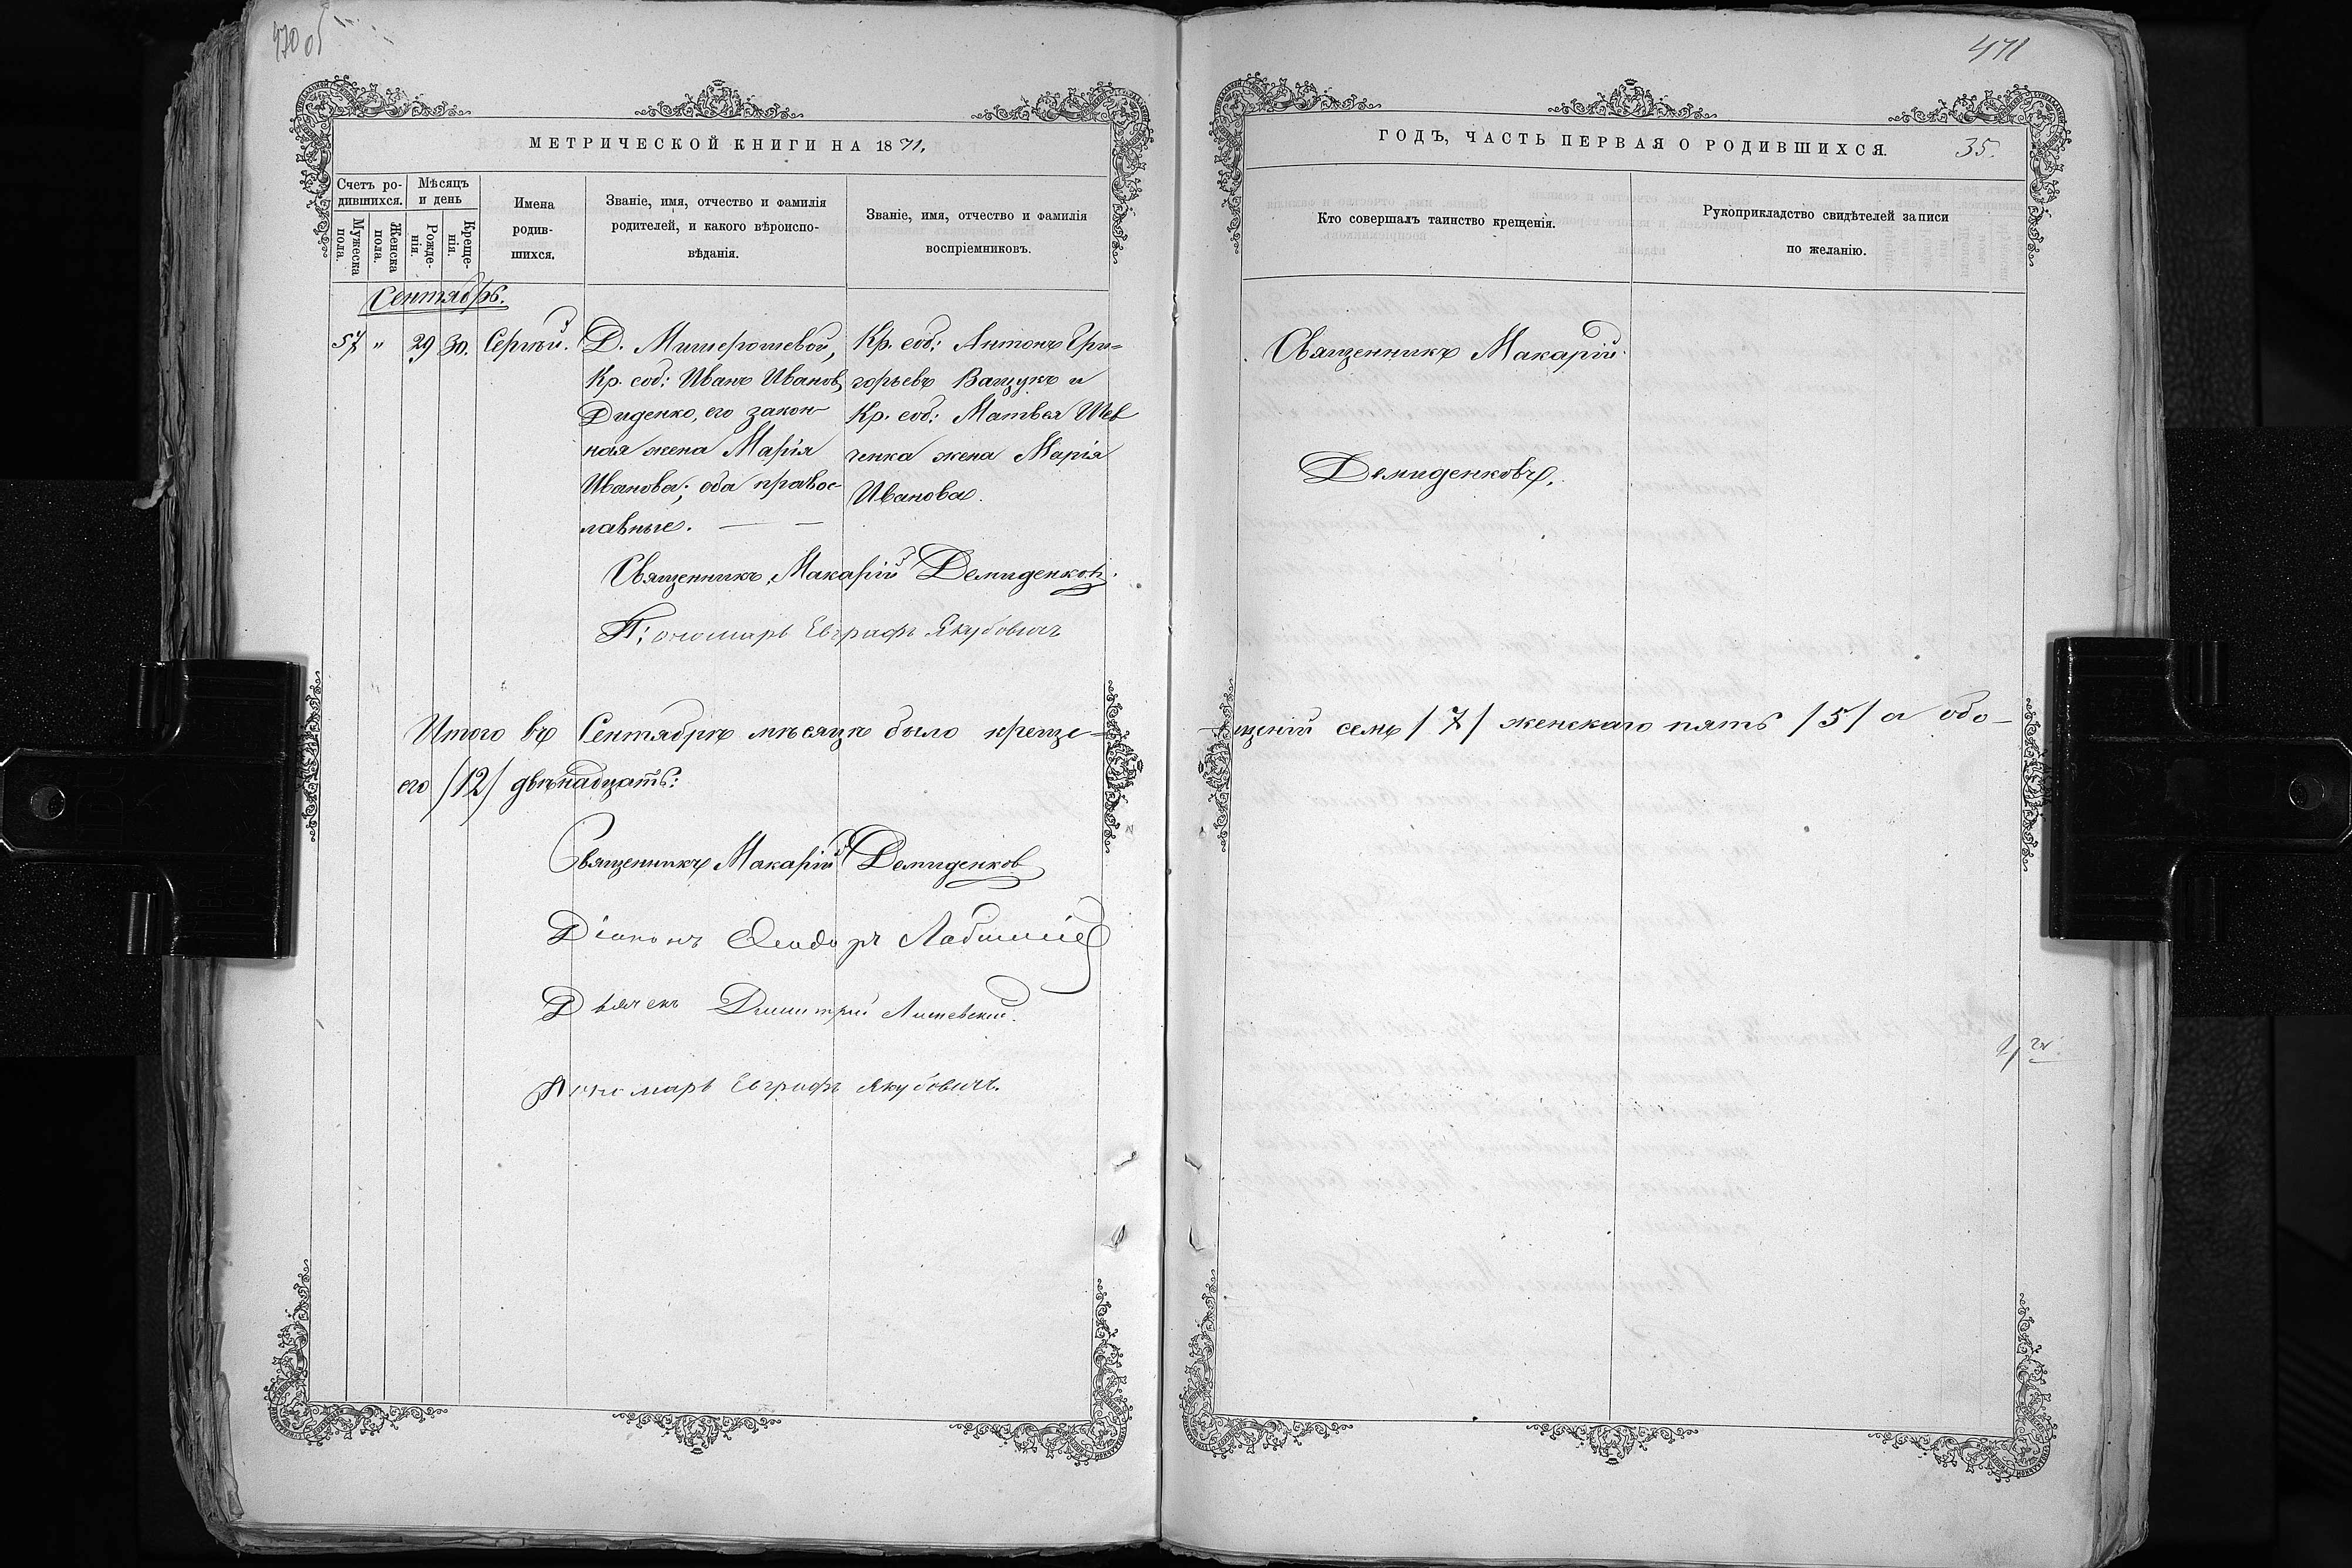 470 об
МЕТРИЧЕСКОЙ КНИГИ НА 1871.
Счетъ ро-
дившихся.
Мѣсяцъ
и день
Мужеска
пола.
Женска
пола.
Рожде-
нія.
Креще-
нія.
Имена
родив-
шихся.
Званіе, имя, отчество и фамилія
родителей, и какого вѣроиспо-
вѣданія.
Званіе, имя, отчество и фамилія
воспріемниковъ.
Сентябрь.
57 " 29 30. Сергѣй.
Кр. соб: Иванъ Иванов
Диденко, его закон-
ная жена Марія
Иванова; оба правос-
лавные.
Кр. соб: Антонъ Гри-
горьевъ Ващукъ и
Кр. соб: Матвея Шев
ченка жена Марія
Иванова.
Священникъ, Макарій Демиденков.
Пономарь Евграфъ Якубовичъ
Итого въ Сентябрѣ мѣсяцѣ было креще-
его /12/ двѣнадцать:
Священникъ Макарій Демиденков
Діаконъ Ѳеодоръ
Дьячекъ Димитрій
Пономарь Евграфъ Якубовичъ.
471
ГОДЪ, ЧАСТЬ ПЕРВАЯ О РОДИВШИХСЯ.
35.
Кто совершалъ таинство крещенія.
Рукоприкладство свидѣтелей записи
по желанію.
Священникъ Макарій
Демиденковъ.
щеній семь /7/ женскаго пять /5/ а обо-